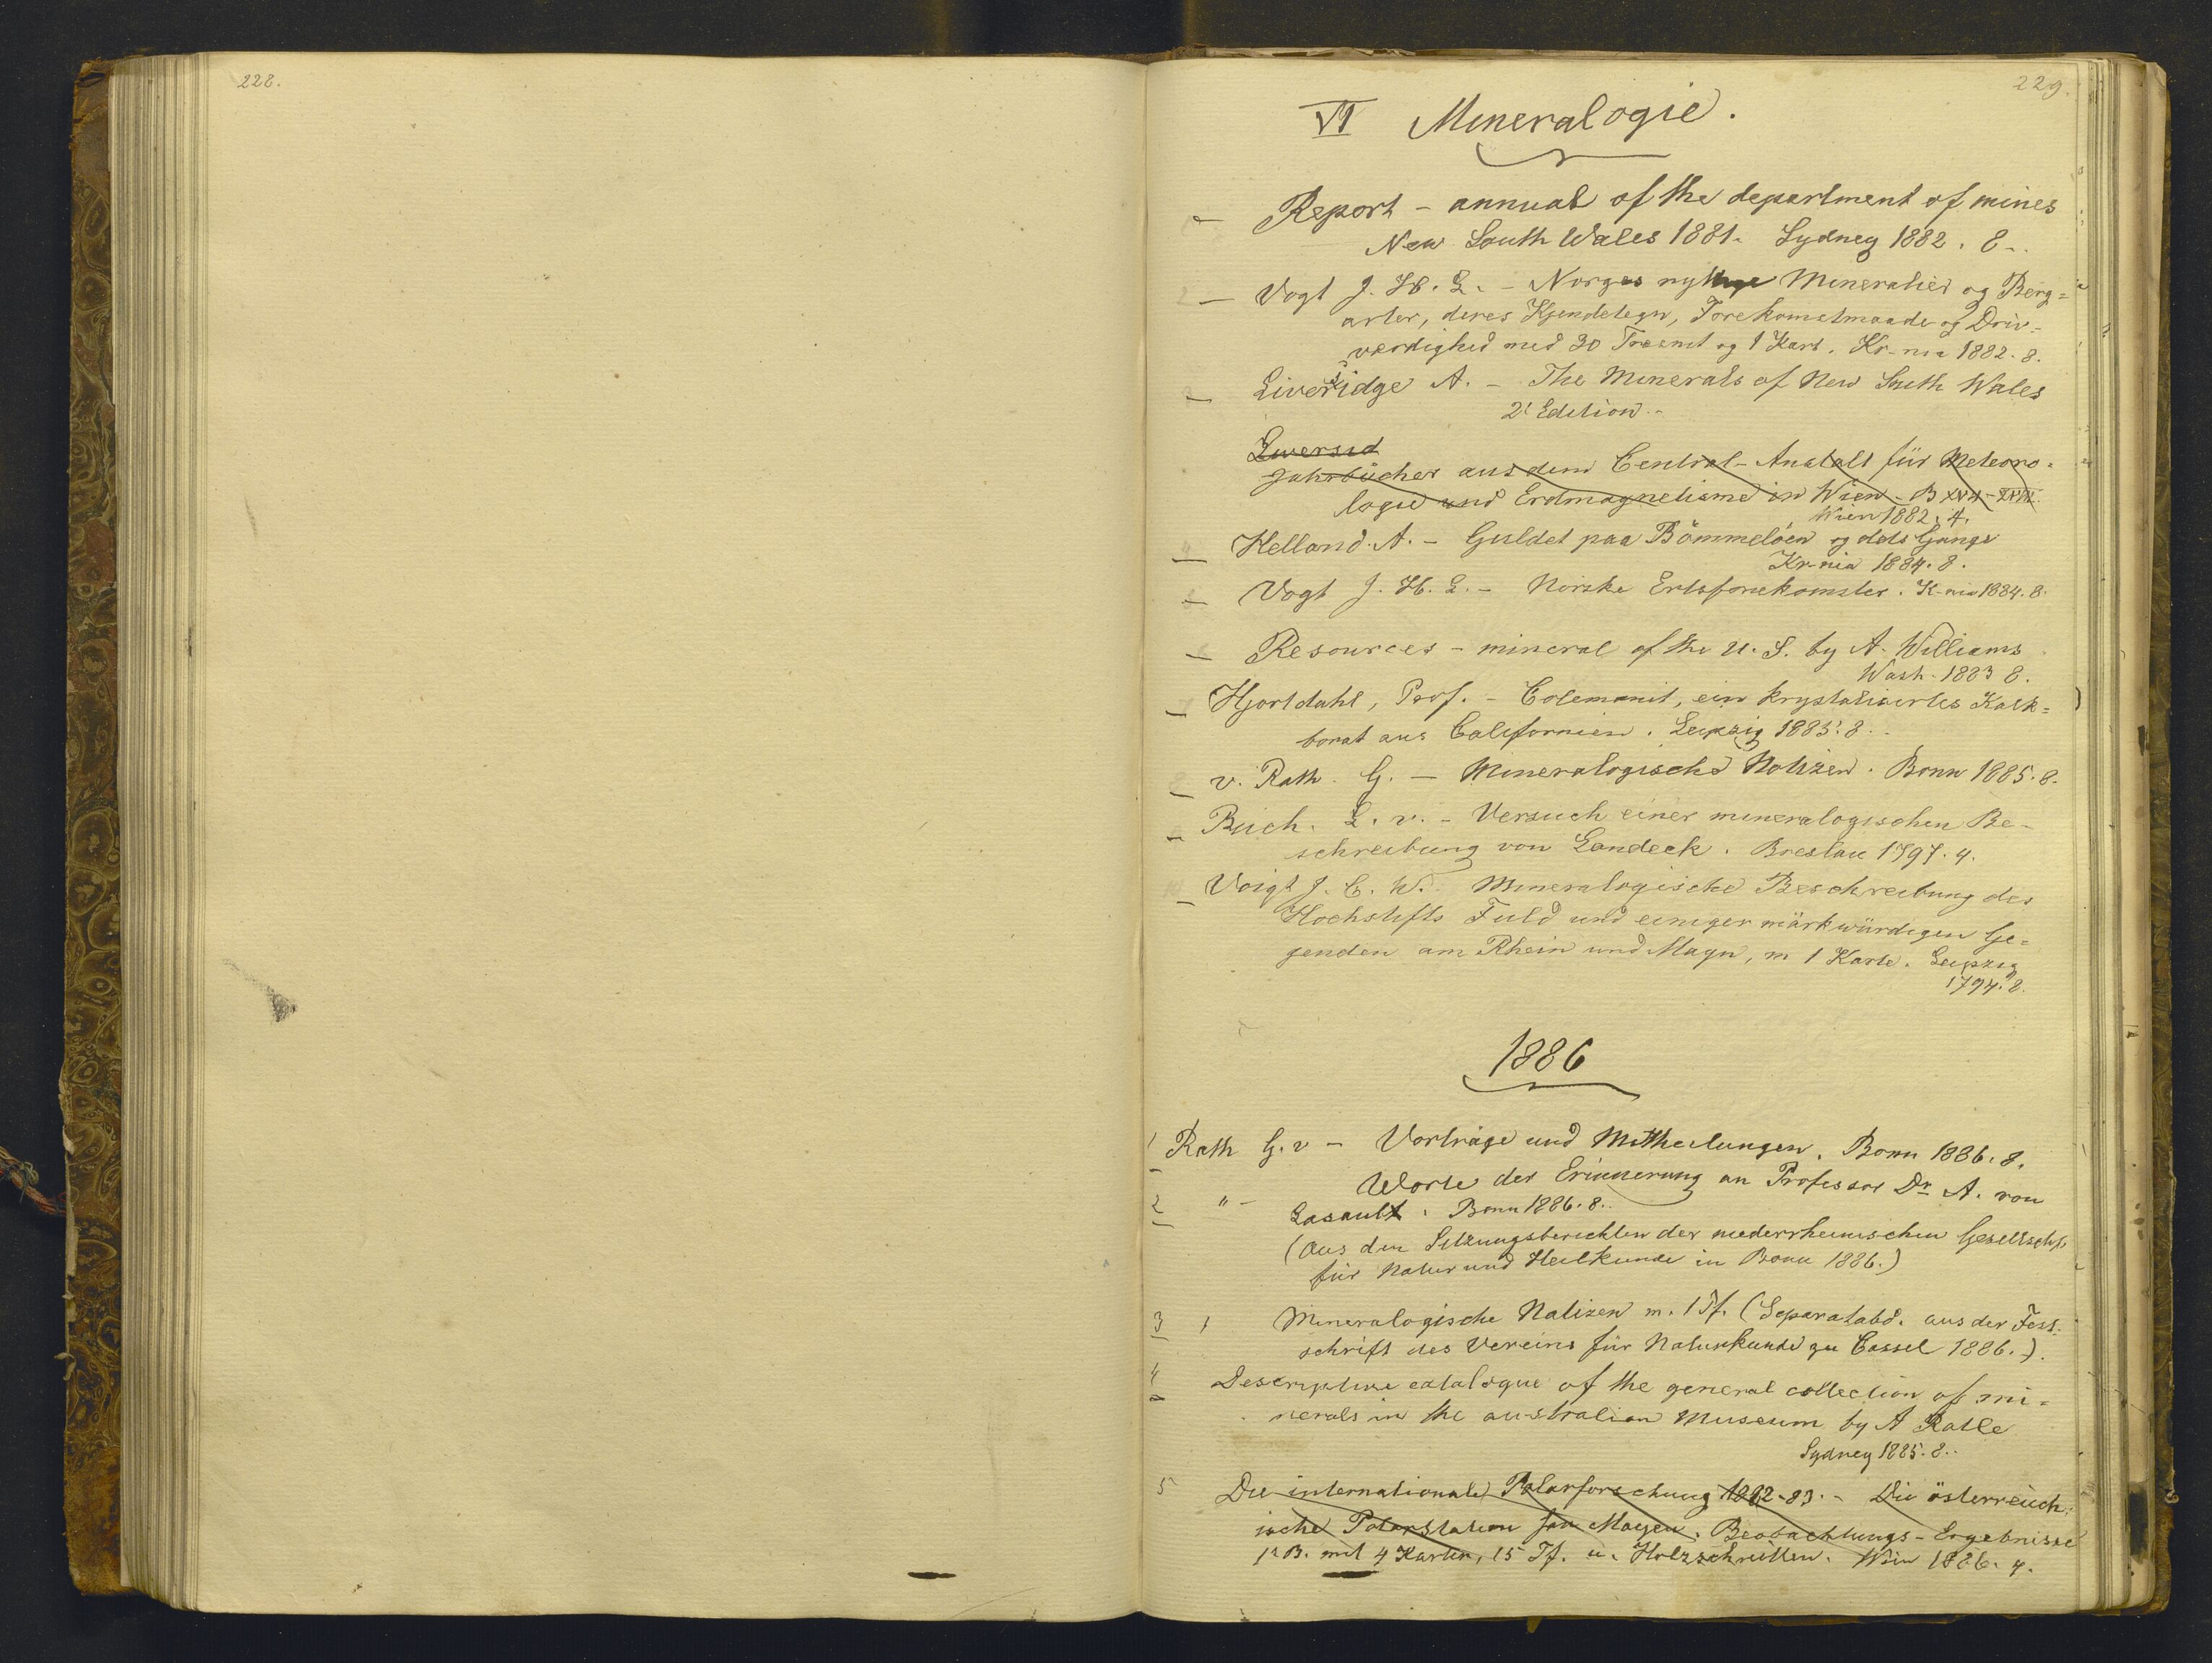 228.
229.
VI Mineralogie.
Report - annual of the department of mines
New South Wales 1881. Sydney 1882. 8..
2 Vogt J. H. L. - Norges nyttige Mineralier og Berg=
arter, deres Kjendetegn, Forekomstmaade og Driv-
værdighed med 30 Træsnit og 1 Kart. Kr-nia 1882. 8.
3 Liversidge A. - The Minerals of New South Wales
2' Edition..
Liversid
Jahrbücher aus dem Central-Anstalt für Meteoro=
logie und Erdmagnetisme in Wien - B XVII-XVIII.
Wien 1882. 4.
4 Helland A. - Guldet paa Bömmelöen og dets Gange
Kr-nia 1884. 8.
Vogt J. H. L. - Norske Ertsforekomster. K-nia 1884. 8.
6 Resources - mineral of the U. S. by A. Williams
Wash. 1883 8.
7 Hjortdahl, Prof. - Colemanit, ein krystalisirtes Kalk=
borat aus Californien. Leipzig 1885. 8..
8 v. Rath. G. - Mineralogische Notizen. Bonn 1885. 8.
Buch. L. v. - Versuch einer mineralogischen Be-
schreibung von Landeck. Breslau 1797. 4.
10 Voigt J. C. W. Mineralogische Beschreibung des
Hochstifts Fuld und einiger märkwürdigen Ge=
genden am Rhein und Mayn, m 1 Karte. Leipzig
1794. 8.
1886
1 Rath G. v - Vorträge und Mittheilungen. Bonn 1886. 8.
2 " - Worte der Erinnerung an Professor Dr A. von
Lasault. Bonn 1886. 8..
(Aus den Sitzungsberichten der niederrheinischen Gesellsch.
für Natur und Heilkunde in Bonn 1886.)
3 Mineralogische Notizen m. 1 Tf. (Separatabd. aus der Fest-
schrift des Vereins für Naturkunde zu Cassel 1886.).
4 Descriptive catalogue of the general collection of mi=
nerals in the australian Museum by A Ratte
Sydney 1885. 8..
5 Die internationale Polarforschung 1882-83. - Die österreich.
ische Polarstation Jan Mayen. Beobachtungs-Ergebnisse
1r B. mit 4 Karten, 15 Tf. u. Holzschnitten. Wien 1886. 4.